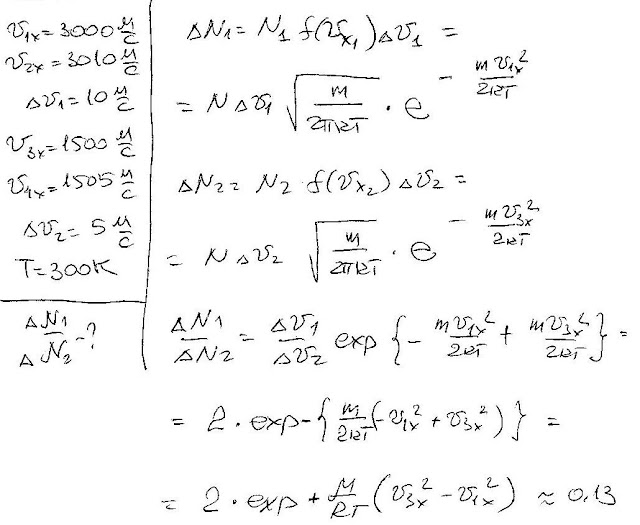 υ₁ₓ = 3000 м/с
υ₂ₓ = 3010 м/с
Δυ₁ = 10 м/с
υ₃ₓ = 1500 м/с
υ₄ₓ = 1505 м/с
Δυ₂ = 5 м/с
T = 300K
ΔN₁/ΔN₂ - ?
ΔN₁ = N₁ f(υₓ₁) Δυ₁ =
= N Δυ₁ √(m/2πkT) · e^(- mυ₁ₓ²/2kT)
ΔN₂ = N₂ f(υₓ₂) Δυ₂ =
= N Δυ₂ √(m/2πkT) · e^(- mυ₃ₓ²/2kT)
ΔN₁/ΔN₂ = Δυ₁/Δυ₂ exp {- mυ₁ₓ²/2kT + mυ₃ₓ²/2kT} =
= 2 · exp - {m/2kT (-υ₁ₓ² + υ₃ₓ²)} =
= 2 · exp + M/RT (υ₃ₓ² - υ₁ₓ²) ≈ 0.13